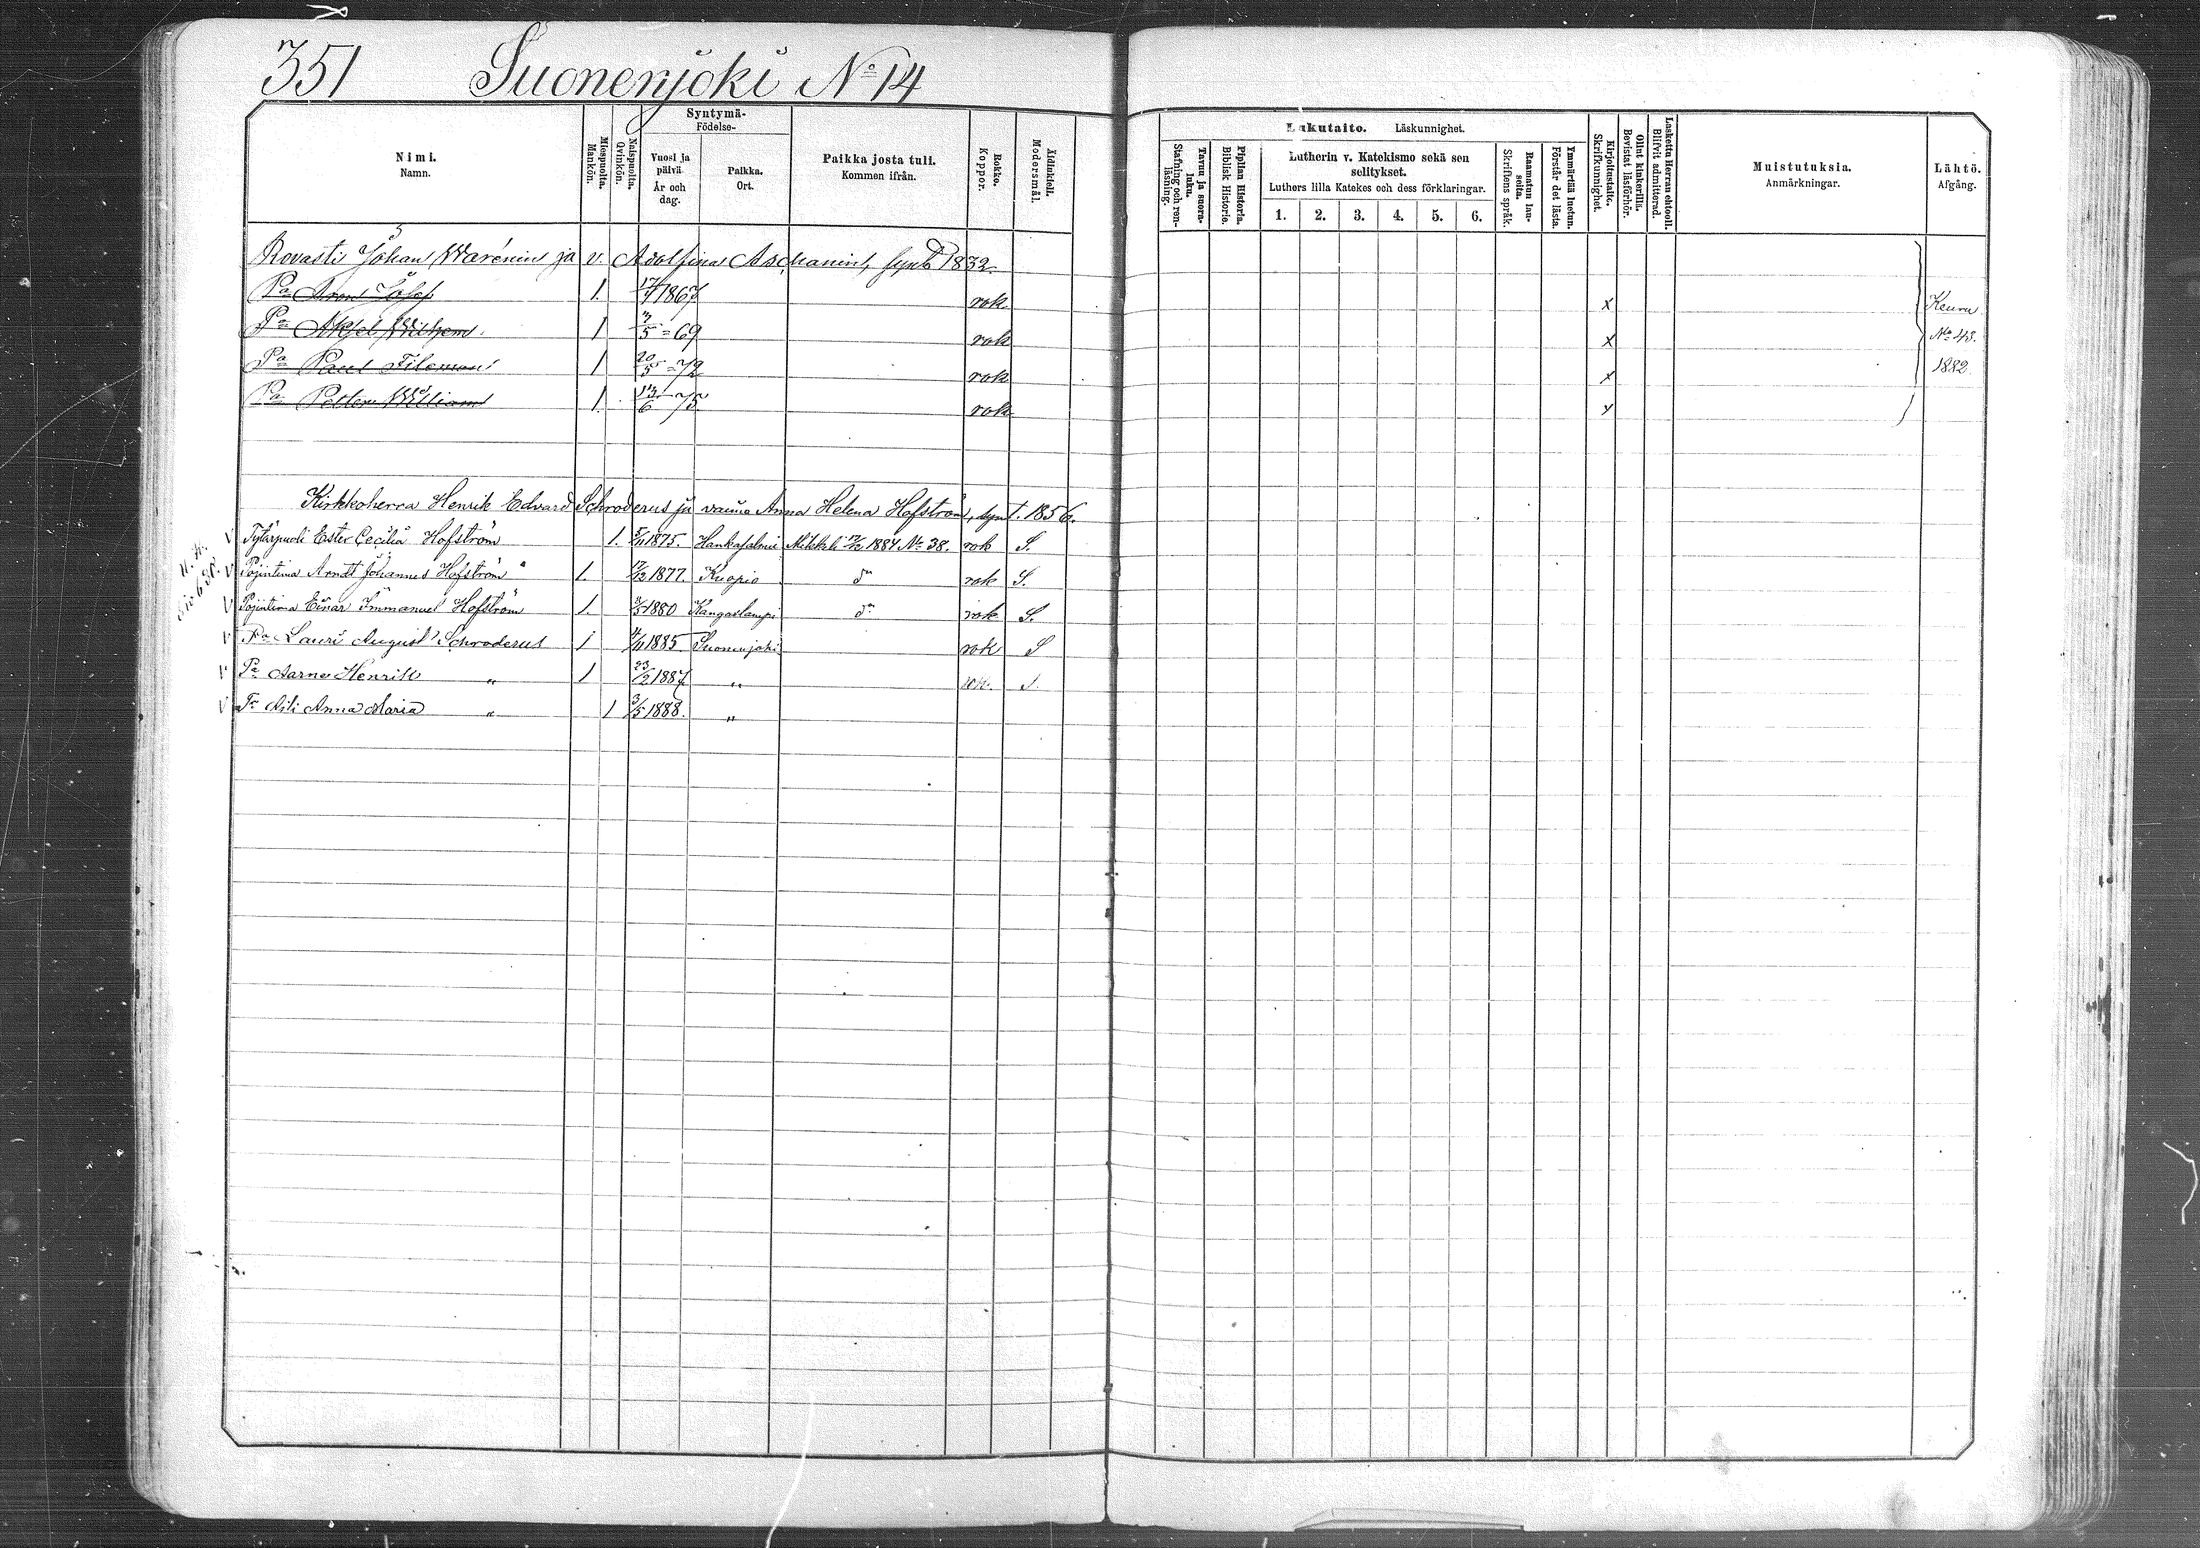 351 Suonenjoki No 14
Nimi.
Namn.
Miespuolta.
Mankön.
Naispuolta.
Qvinkön.
Syntymä-
Födelse-
Vuosi ja
päivä.
År och
dag.
Paikka.
Ort.
Paikka josta tuli.
Kommen ifrån.
Rokko.
Koppor.
Äidinkieli.
Modersmål.
Lukutaito. Läskunnighet.
Tavuu ja suora-
luku.
Stafning och ren-
läsning.
Piplian Historia.
Biblisk Historie.
Lutherin v. Katekismo sekä sen
selitykset.
Luthers lilla Katekes och dess förklaringar.
1. 2. 3. 4. 5. 6.
Raamatun lau-
seita.
Skriftens språk.
Ymmärtää luetun.
Förstår det lästa.
Kirjoitustaito.
Skrifkunnighet.
Ollut kinkerillä.
Bevistat läsförhör.
Laskettu Herran ehtooll.
Blifvit admitterad.
Muistutuksia.
Anmärkningar.
Lähtö.
Afgång.
Rovasti Johan Warénius ja v. Adolfina Aschanint, synt 1832.
Pa Aron Josef 1. 17/7 1867 rok x Keuru
Pa Aksel Wilhem 1 3/5 = 69 rok x No 43.
Pa Paul Filemon 1 20/5 = 72 rok x 1882
Pa Petter William 1. 13/6 75 rok x
Kirkkoherra Henrik Edvard Schroderus ja vaimo Anna Helena Hofström, synt. 1856.
V Tytärpuoli Ester Cecilia Hofström 1. 5/11 1875. Hankasalmi Mikkeli 17/12 1884 No 38. rok S.
V Pojintima Arndt Johannes Hofström 1. 17/12 1877. Kuopio do rok S.
V Pojintima Einar Immanuel Hofström 1. 3/5 1880 Kangaslampi do rok S.
V Pa Lauri August Schroderus 1 4/11 1885 Suonenjoki rok S
V Pa Aarne Henrik " 1 23/2 1887 " rok. S.
V Tr Aili Anna Maria " 1 3/5 1888. "